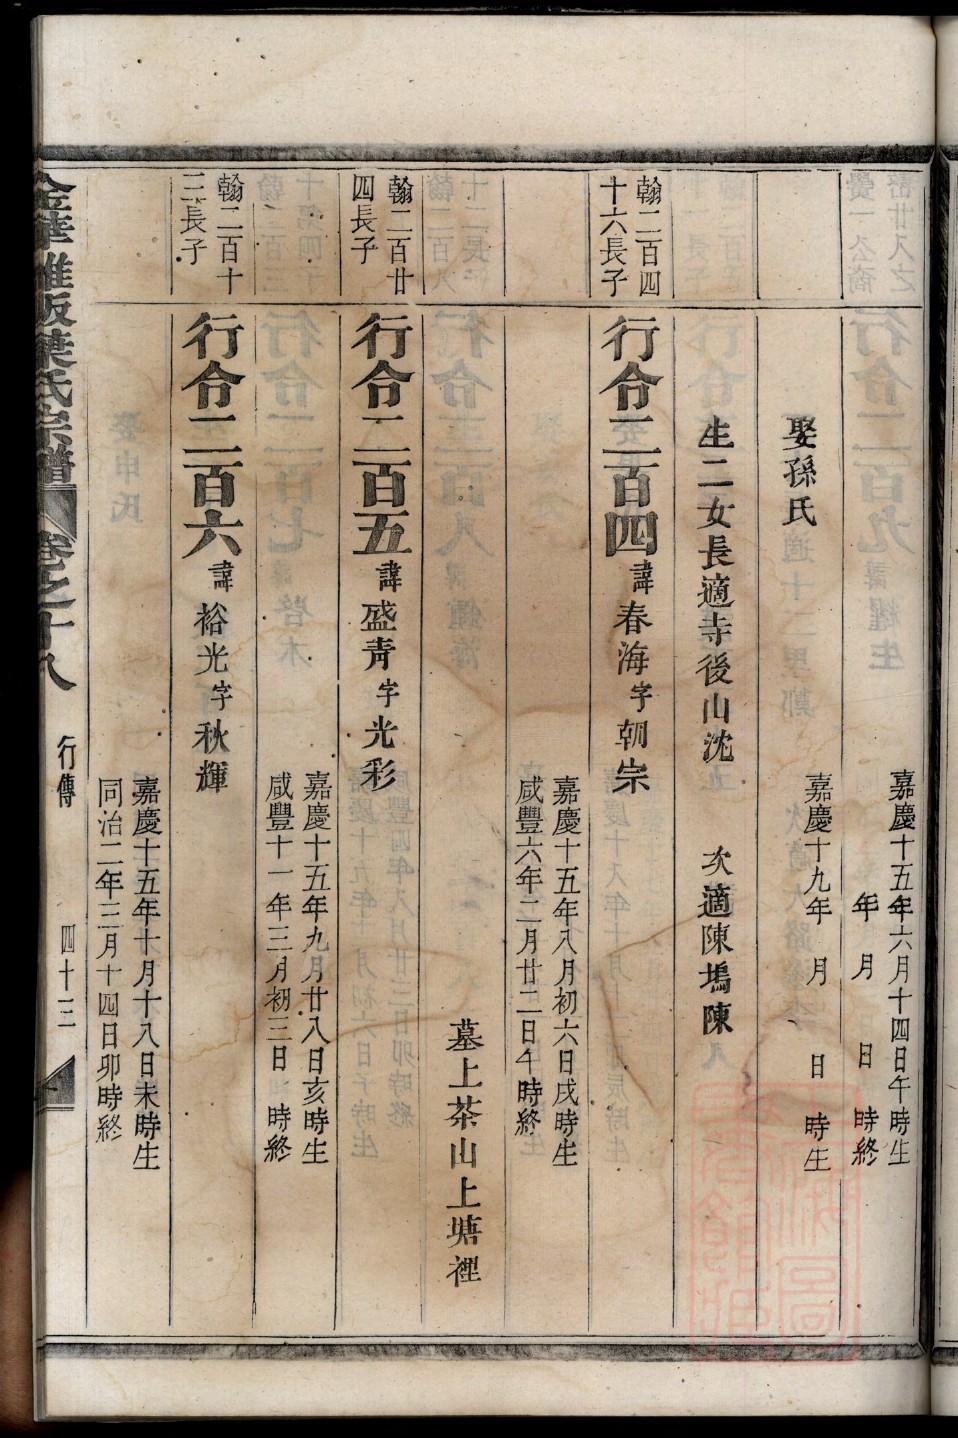 嘉慶十五年六月十四日午時生
年 月 日 時終
娶孫氏
嘉慶十九年 月 日 時生
生二女長適寺後山沈 次適陳塢陳
翰二百四
十六長子
行令二百四諱春海字朝宗
嘉慶十五年八月初六日戌時生
咸豐六年二月廿二日午時終
墓上茶山上塘裡
翰二百廿
四長子
行令二百五諱盛青字光彩
嘉慶十五年九月廿八日亥時生
咸豐十一年三月初三日 時終
翰二百十
三長子
行令二百六諱裕光字秋輝
嘉慶十五年十月十八日未時生
同治二年三月十四日卯時終
金華雅畈葉氏宗譜 卷之十八 行傳 四十三